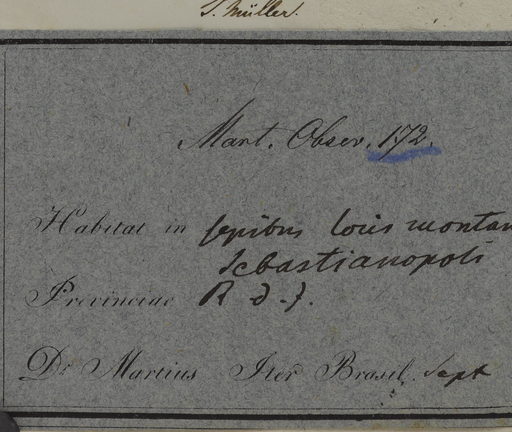 S. Müller.
Mart. Obser. 172.
Habitat in sepibus locis montan
Sebastianopoli
Provinciae R. d. J.
Dr. Martius Iter Brasil. Sept